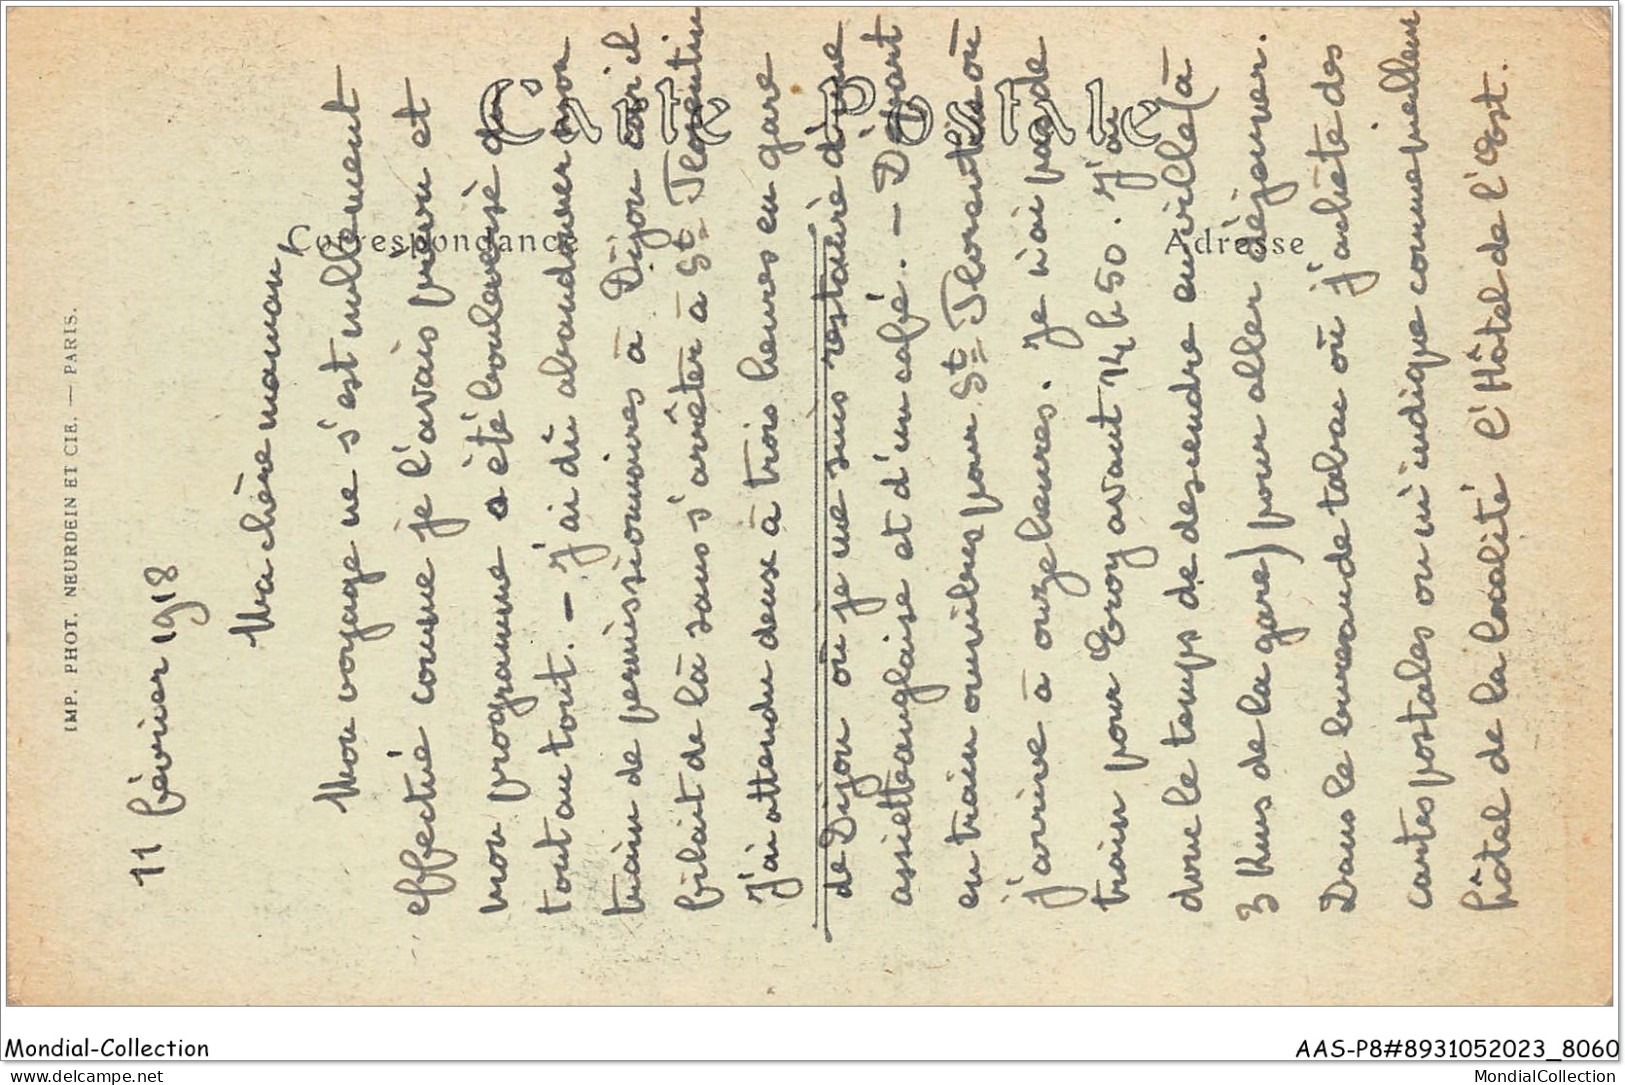 11 février 1918
Ma chère maman,
Mon voyage ne s'est nullement
effectué comme je l'avais prévu et
mon programme a été bouleversé du
tout au tout. — J'ai dû abandonner mon
train de permissionnaires à Dijon car il
filait de là sans s'arrêter à St Florentin
J'ai attendu deux à trois heures en gare
de Dijon où je me suis restauré d'une
assiette anglaise et d'un café. — Départ
en train omnibus pour St Florentin où
j'arrive à onze heures. Je n'ai pas de
train pour Ervy avant 14 h 50. J'ai
donc le temps de descendre en ville (à
3 kms de la gare) pour aller déjeuner.
Dans le bureau de tabac où j'achète des
cartes postales on m'indique comme meilleur
hôtel de la localité l'Hôtel de l'Est.
Carte Postale
Correspondance
Adresse
IMP. PHOT. NEURDEIN ET CIE. — PARIS.
Mondial-Collection
AAS-P8#8931052023_8060
www.delcampe.net
MondialCollection